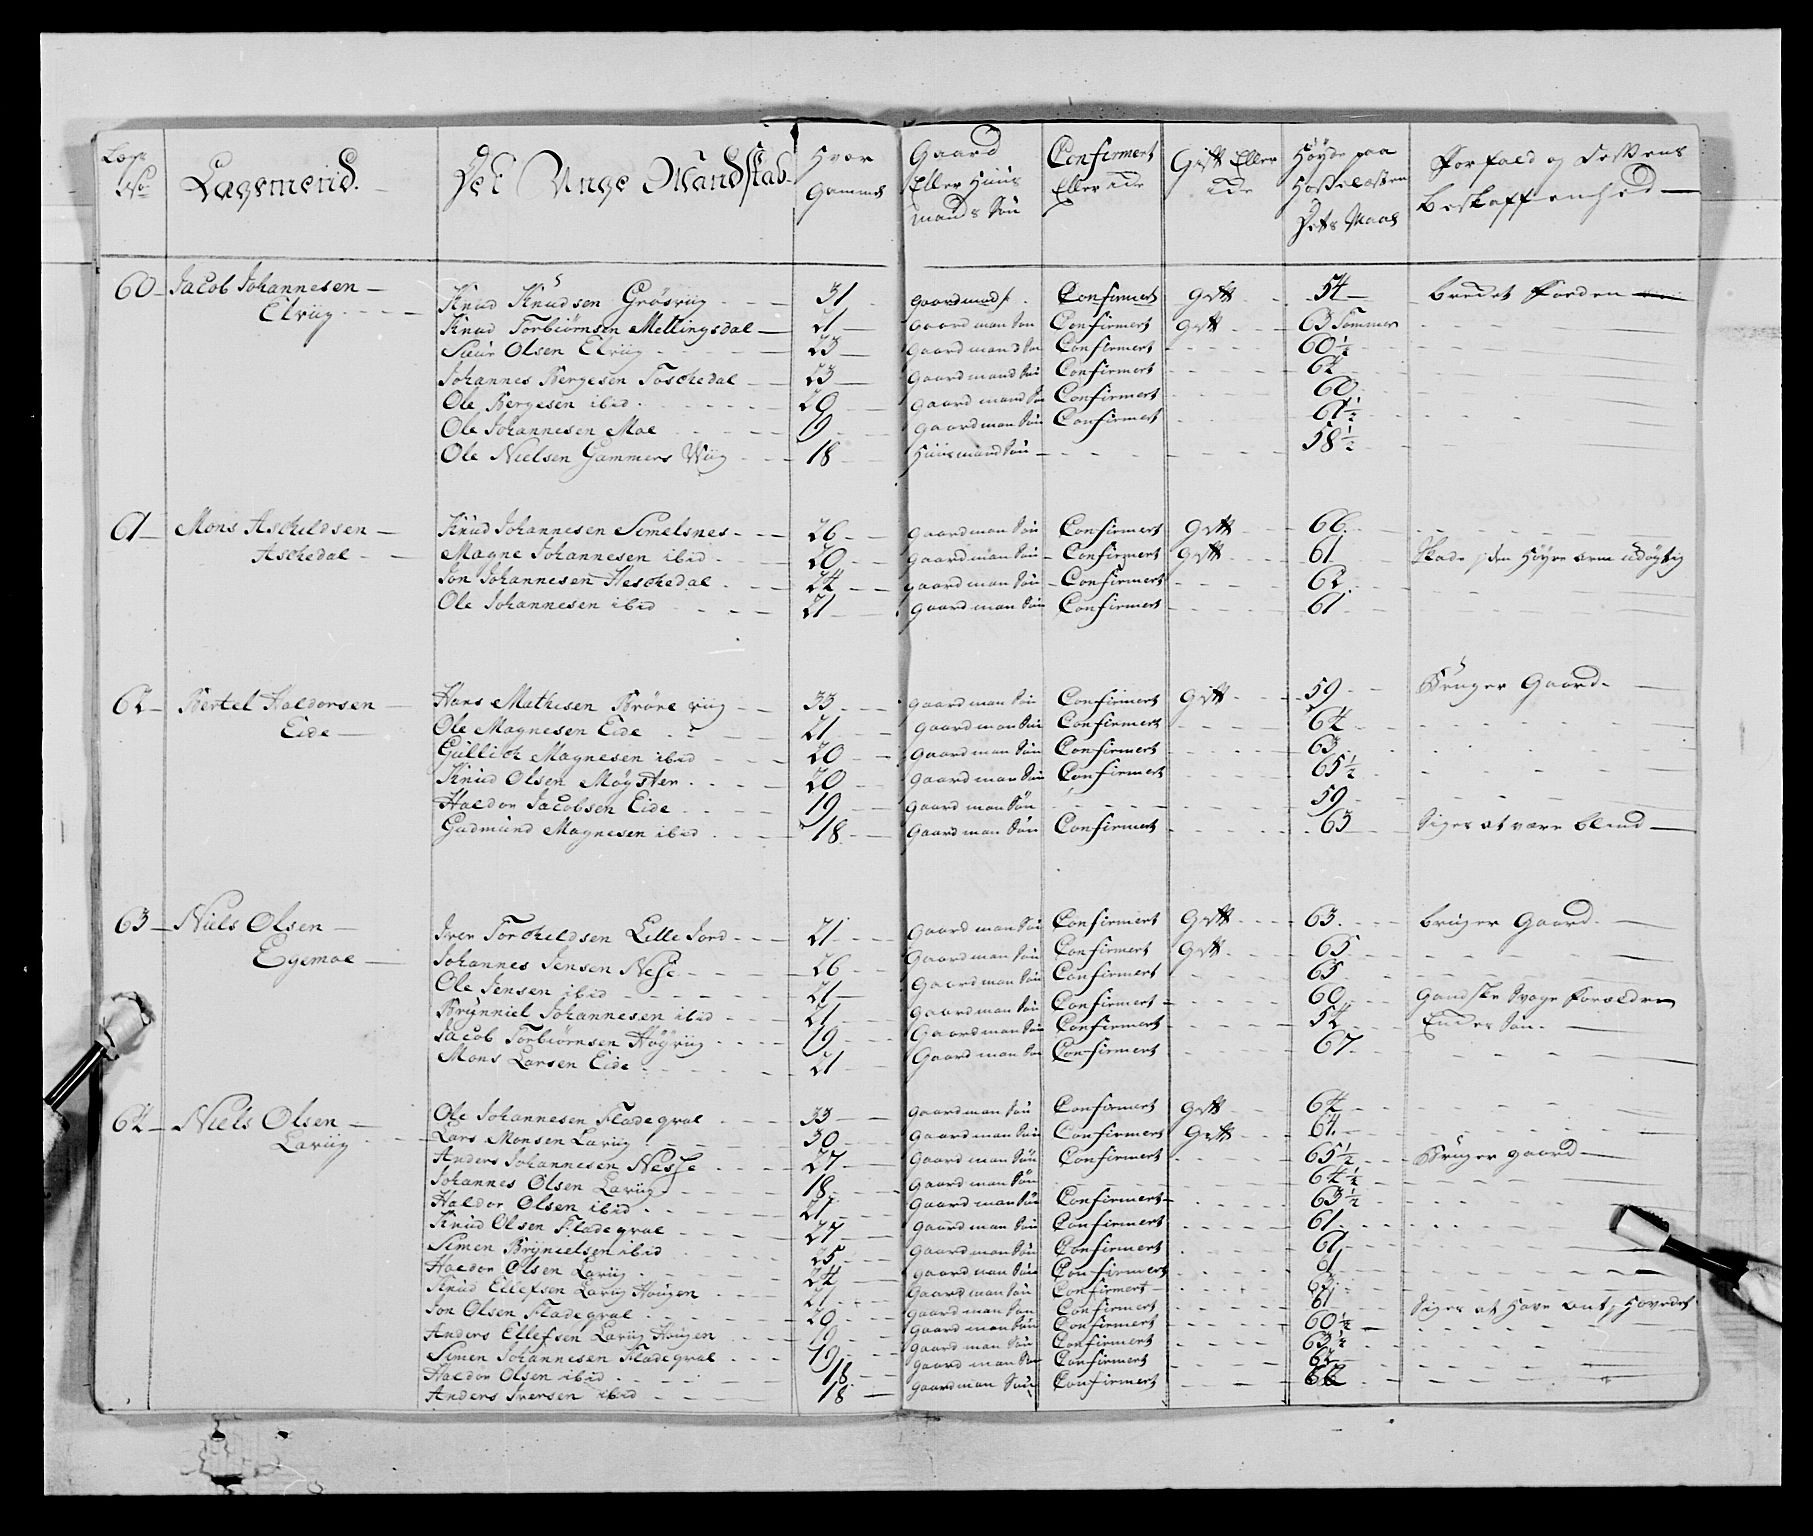 Læg No | Lægsmend. | Det Unge Mandskab | Hvor Gammel | Gaard Eller Huus mands Søn | Confirmert Eller ide | Gift Eller ide | Høyde paa Hosselæsten Dets Maal | Forfald og dessens beskaffenhed
60 Jacob Johannesen Elviig
Knud Knudsen Grösviig 31 Gaardmands Confirmert Gift 54
Knud Torbiörnsen Mellingsdal 21 Gaardman Søn Confirmert Gift 63 Tommer
Siur Olsen Elviig 23 Gaardmands Søn Confirmert 60 1/2
Johannes Bergesen Toschedal 23 Gaardmand Søn Confirmert 62
Ole Bergesen ibid 20 Gaardmand Søn Confirmert 60
Ole Johannesen Moe 19 Gaardman Søn Confirmert 61 1/2
Ole Nielsen Gammers Wiig 18 Huusmand Søn 58 1/2
61 Mons Aschildsen Aschedal
Knud Johannesen Semelsnes 26 Gaardman Søn Confirmert Gift 66
Magne Johannesen ibid 20 Gaardman Søn Confirmert Gift 61 Skade i den Høyre arm udögtig
Jon Johannesen Heschedal 24 Gaardman Søn Confirmert 62
Ole Johannesen ibid 21 Gaardman Søn Confirmert 61
62 Bertel Haldorsen Eide
Hans Mathisen Bröreviig 33 Gaardman Søn Confirmert Gift 59 Bruger Gaard
Ole Magnesen Eide 21 Gaardman Søn Confirmert 64
Gullich Magnesen ibid 20 Gaardman Søn Confirmert 63
Knud Olsen Möyster 20 Gaardman Søn Confirmert 65 1/2
Haldor Jacobsen Eide 19 Gaardman Søn 59
Gudmund Magnesen ibid 18 Gaardman Søn Confirmert 63 Siges at være blind
63 Niels Olsen Eyemoe
Iver Torchildsen Lille Jord 21 Gaardman Søn Confirmert Gift 63 bruger Gaard
Johannes Jensen Nese 26 Gaardman Søn Confirmert Gift 65
Ole Jensen ibid 21 Gaardman Søn Confirmert 65
Brynniel Johannesen ibid 21 Gaardman Søn Confirmert 60 Gandske Svage Forældre
Jacob Torbiörnsen Höyviig 19 Gaardman Søn Confirmert 54 Enestes Søn
Mons Larsen Eide 21 Gaardman Søn Confirmert 67
64 Niels Olsen Laviig
Ole Johannesen Fladegral 33 Gaardman Søn Confirmert Gift 64
Lars Monsen Laviig 30 Gaardman Søn Confirmert Gift 61
Anders Johannesen Nesse 27 Gaardman Søn Confirmert 65 1/2 Bruger gaard
Johannes Olsen Laviig 18 Gaardman Søn 64 1/2
Haldor Olsen ibid 21 Gaardman Søn Confirmert 63 1/2
Knud Olsen Fladegral 27 Gaardman Søn Confirmert 61
Simen Brynielsen ibid 25 Gaardman Søn Confirmert 61
Haldor Olsen Laviig 24 Gaardman Søn Confirmert 61
Knud Ellefsen Laviig Hougen 21 Gaardman Søn Confirmert 63
Jon Olsen Fladegral 20 Gaardman Søn Confirmert 61 Siges at Have ont i Hovedet
Anders Ellefsen Laviig Hougen 19 Gaardman Søn Confirmert 60 1/2
Simen Johannesen Fladegral 19 Gaardman Søn Confirmert 63 1/2
Haldor Olsen ibid 18 Gaardman Søn Confirmert
Anders Iversen ibid 18 Gaardman Søn Confirmert